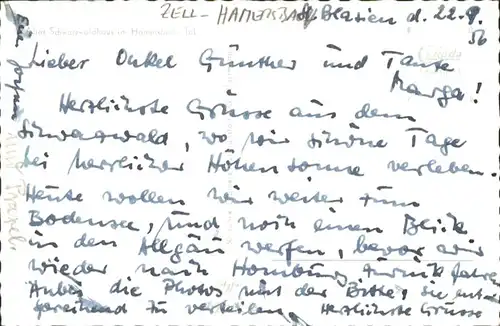 ZELL-HAMERSBACH
St. Blasien d. 22.9.
56
Lieber Onkel Günther und Tante
Marga!
Herzlichste Grüsse aus dem
Schwarzwald, wo wir schöne Tage
bei herrlicher Höhensonne verleben.
Heute wollen wir weiter zum
Bodensee, und noch einen Blick
in den Allgäu werfen, bevor wir
wieder nach Homburg zurück fahren.
Anbei die Photos mit der Bitte, sie ent
sprechend zu verteilen. Herzlichste Grüsse